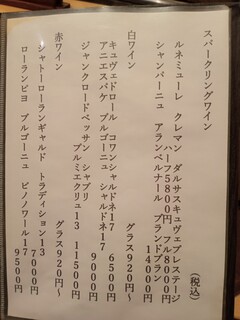 スパークリングワイン
(税込)
ルネミューレ クレマン ダルザスキュヴェプレステージ
ハーフ5800円 フル8900円
シャンパーニュ アランベルナール ブランドブラン
14000円
白ワイン
グラス920円~
キュヴェドロール コワンシャルドネ17 6500円
アニエスパケ ブルゴーニュ シャルドネ17
9000円
ジャンクロードベッサン シャブリ
プルミエクリュ13 11500円
赤ワイン
グラス920円~
シャトーローランギャルド トラディション13
7000円
ローランピヨ ブルゴーニュ ピノノワール17
9500円